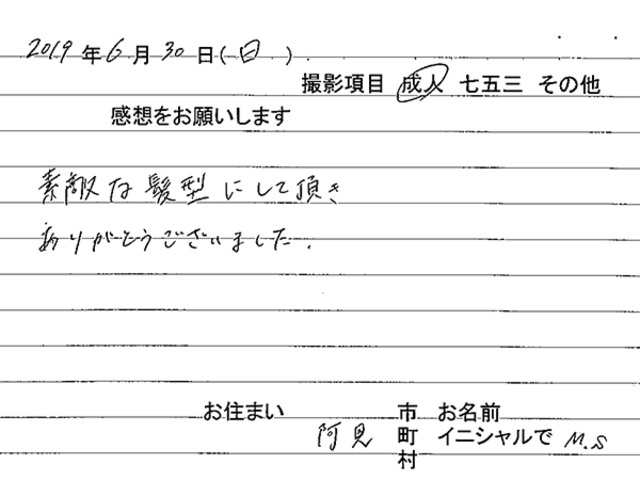 2019年6月30日(日)
撮影項目 成人 七五三 その他
感想をお願いします
素敵な髪型にして頂き
ありがとうございました.
お住まい 市 お名前
阿見 町 イニシャルで M.S
村